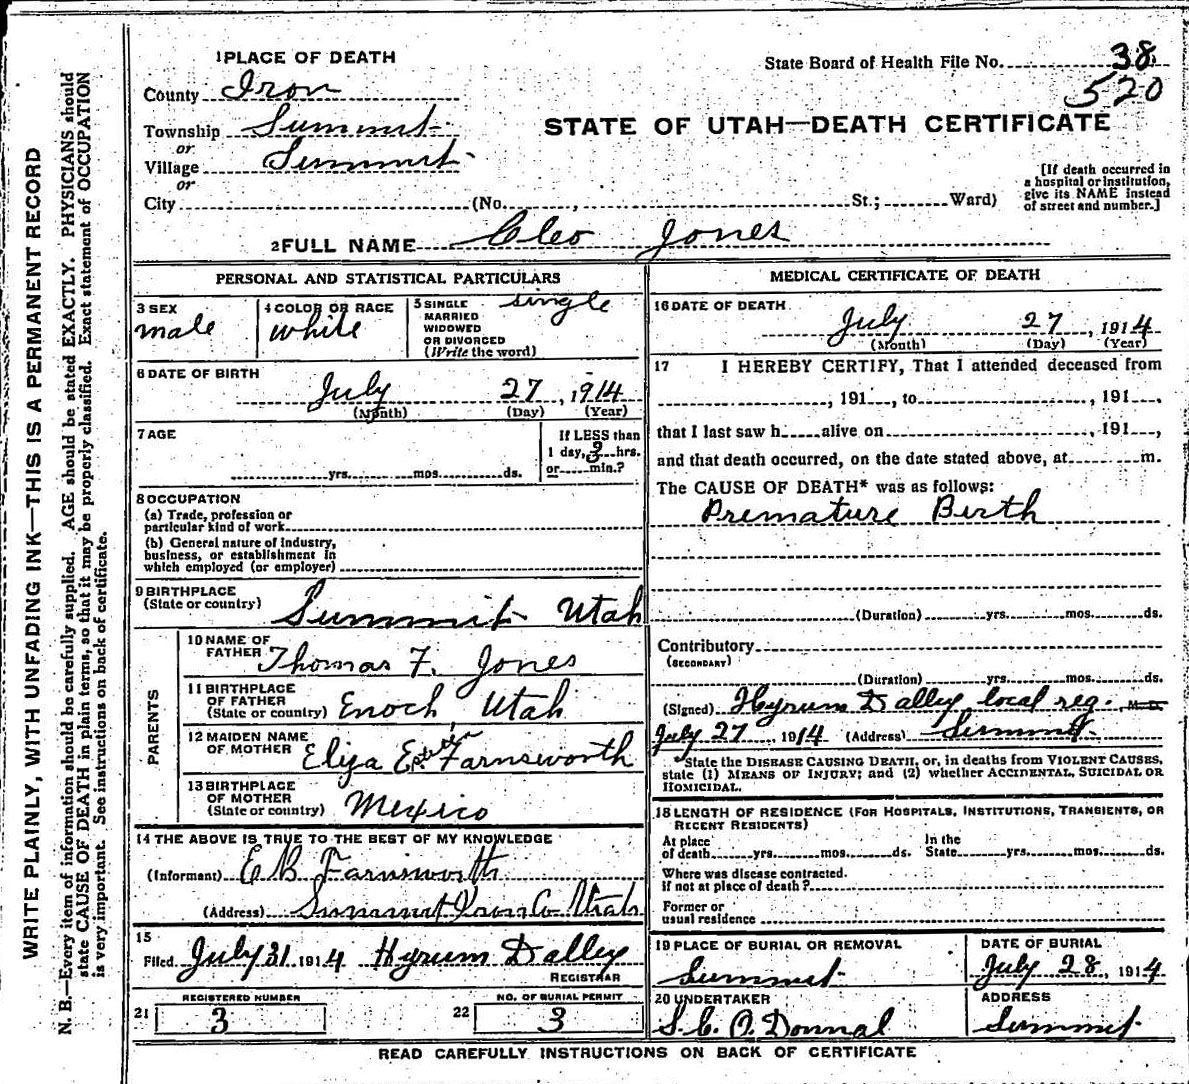 WRITE PLAINLY, WITH UNFADING INK—THIS IS A PERMANENT RECORD
N. B.—Every item of information should be carefully supplied. AGE should be stated EXACTLY. PHYSICIANS should
state CAUSE OF DEATH in plain terms, so that it may be properly classified. Exact statement of OCCUPATION
is very important. See instructions on back of certificate.
1 PLACE OF DEATH
State Board of Health File No. 38
520
County Iron
Township Summit
or
Village Summit
or
STATE OF UTAH—DEATH CERTIFICATE
[If death occurred in
a hospital or institution,
give its NAME instead
of street and number.]
City (No. , St.; Ward)
2 FULL NAME Cleo Jones
PERSONAL AND STATISTICAL PARTICULARS
3 SEX
male
4 COLOR OR RACE
white
5 SINGLE
MARRIED
WIDOWED
OR DIVORCED
(Write the word)
single
6 DATE OF BIRTH
July 27, 1914
(Month) (Day) (Year)
7 AGE
yrs. mos. ds.
If LESS than
1 day, 3 hrs.
or min.?
8 OCCUPATION
(a) Trade, profession or
particular kind of work
(b) General nature of industry,
business, or establishment in
which employed (or employer)
9 BIRTHPLACE
(State or country) Summit Utah
PARENTS
10 NAME OF
FATHER Thomas F. Jones
11 BIRTHPLACE
OF FATHER
(State or country) Enoch, Utah
12 MAIDEN NAME
OF MOTHER Eliza Farnsworth
13 BIRTHPLACE
OF MOTHER
(State or country) Mexico
14 THE ABOVE IS TRUE TO THE BEST OF MY KNOWLEDGE
(Informant) E B Farnsworth
(Address) Summit Iron Co Utah
15
Filed July 31, 1914 Hyrum Dalley
REGISTRAR
REGISTERED NUMBER
21 3
NO. OF BURIAL PERMIT
22 3
MEDICAL CERTIFICATE OF DEATH
16 DATE OF DEATH
July 27, 1914
(Month) (Day) (Year)
17 I HEREBY CERTIFY, That I attended deceased from
, 191 , to , 191 ,
that I last saw h alive on , 191 ,
and that death occurred, on the date stated above, at m.
The CAUSE OF DEATH* was as follows:
Premature Birth
(Duration) yrs. mos. ds.
Contributory
(SECONDARY)
(Duration) yrs. mos. ds.
(Signed) Hyrum Dalley local reg., M. D.
July 27, 1914 (Address) Summit
*State the DISEASE CAUSING DEATH, or, in deaths from VIOLENT CAUSES,
state (1) MEANS OF INJURY; and (2) whether ACCIDENTAL, SUICIDAL OR
HOMICIDAL.
18 LENGTH OF RESIDENCE (FOR HOSPITALS, INSTITUTIONS, TRANSIENTS, OR
RECENT RESIDENTS)
At place
of death yrs. mos. ds.
In the
State yrs. mos. ds.
Where was disease contracted.
if not at place of death?
Former or
usual residence
19 PLACE OF BURIAL OR REMOVAL
Summit
DATE OF BURIAL
July 28, 1914
20 UNDERTAKER
ADDRESS
Summit
READ CAREFULLY INSTRUCTIONS ON BACK OF CERTIFICATE